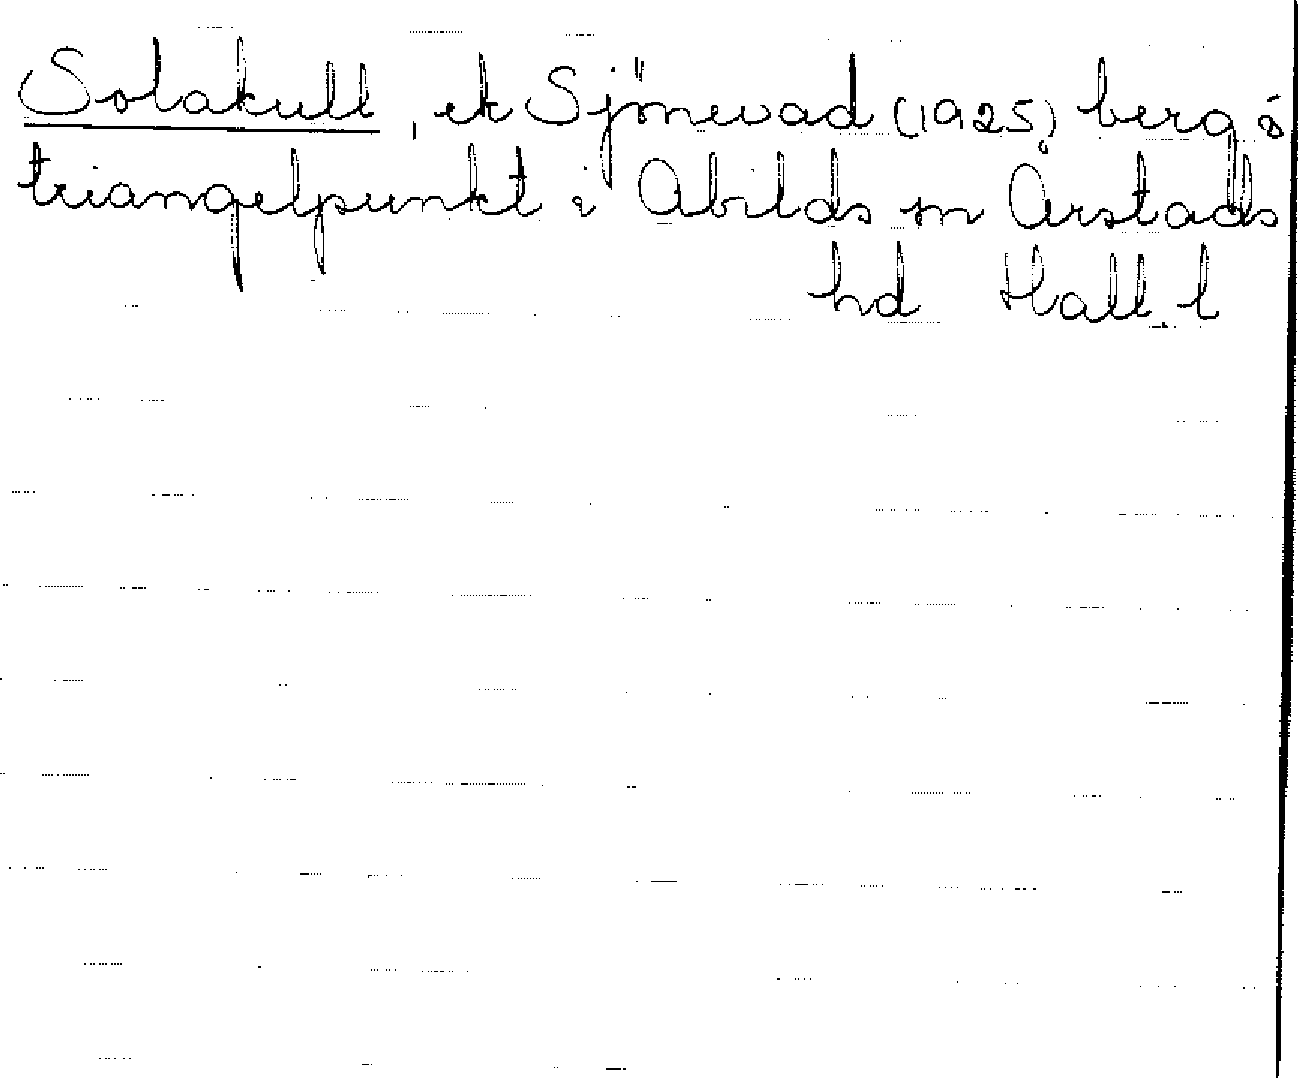 Solakull, ek Sjönevad (1925) berg o
triangelpunkt i Abilds sn Årstads
hd Hall. l